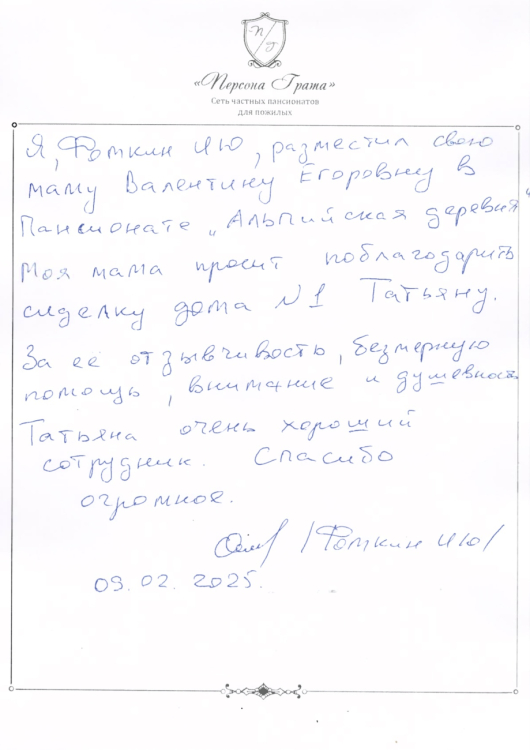 П Г
«Персона Грата»
Сеть частных пансионатов
для пожилых
Я, Фомкин ИЮ, разместил свою
маму Валентину Егоровну в
Пансионате „Альпийская деревня“
Моя мама просит поблагодарить
сиделку дома №1 Татьяну.
За её отзывчивость, безмерную
помощь, внимание и душевность
Татьяна очень хороший
сотрудник. Спасибо
огромное.
/Фомкин ИЮ/
09.02.2025.